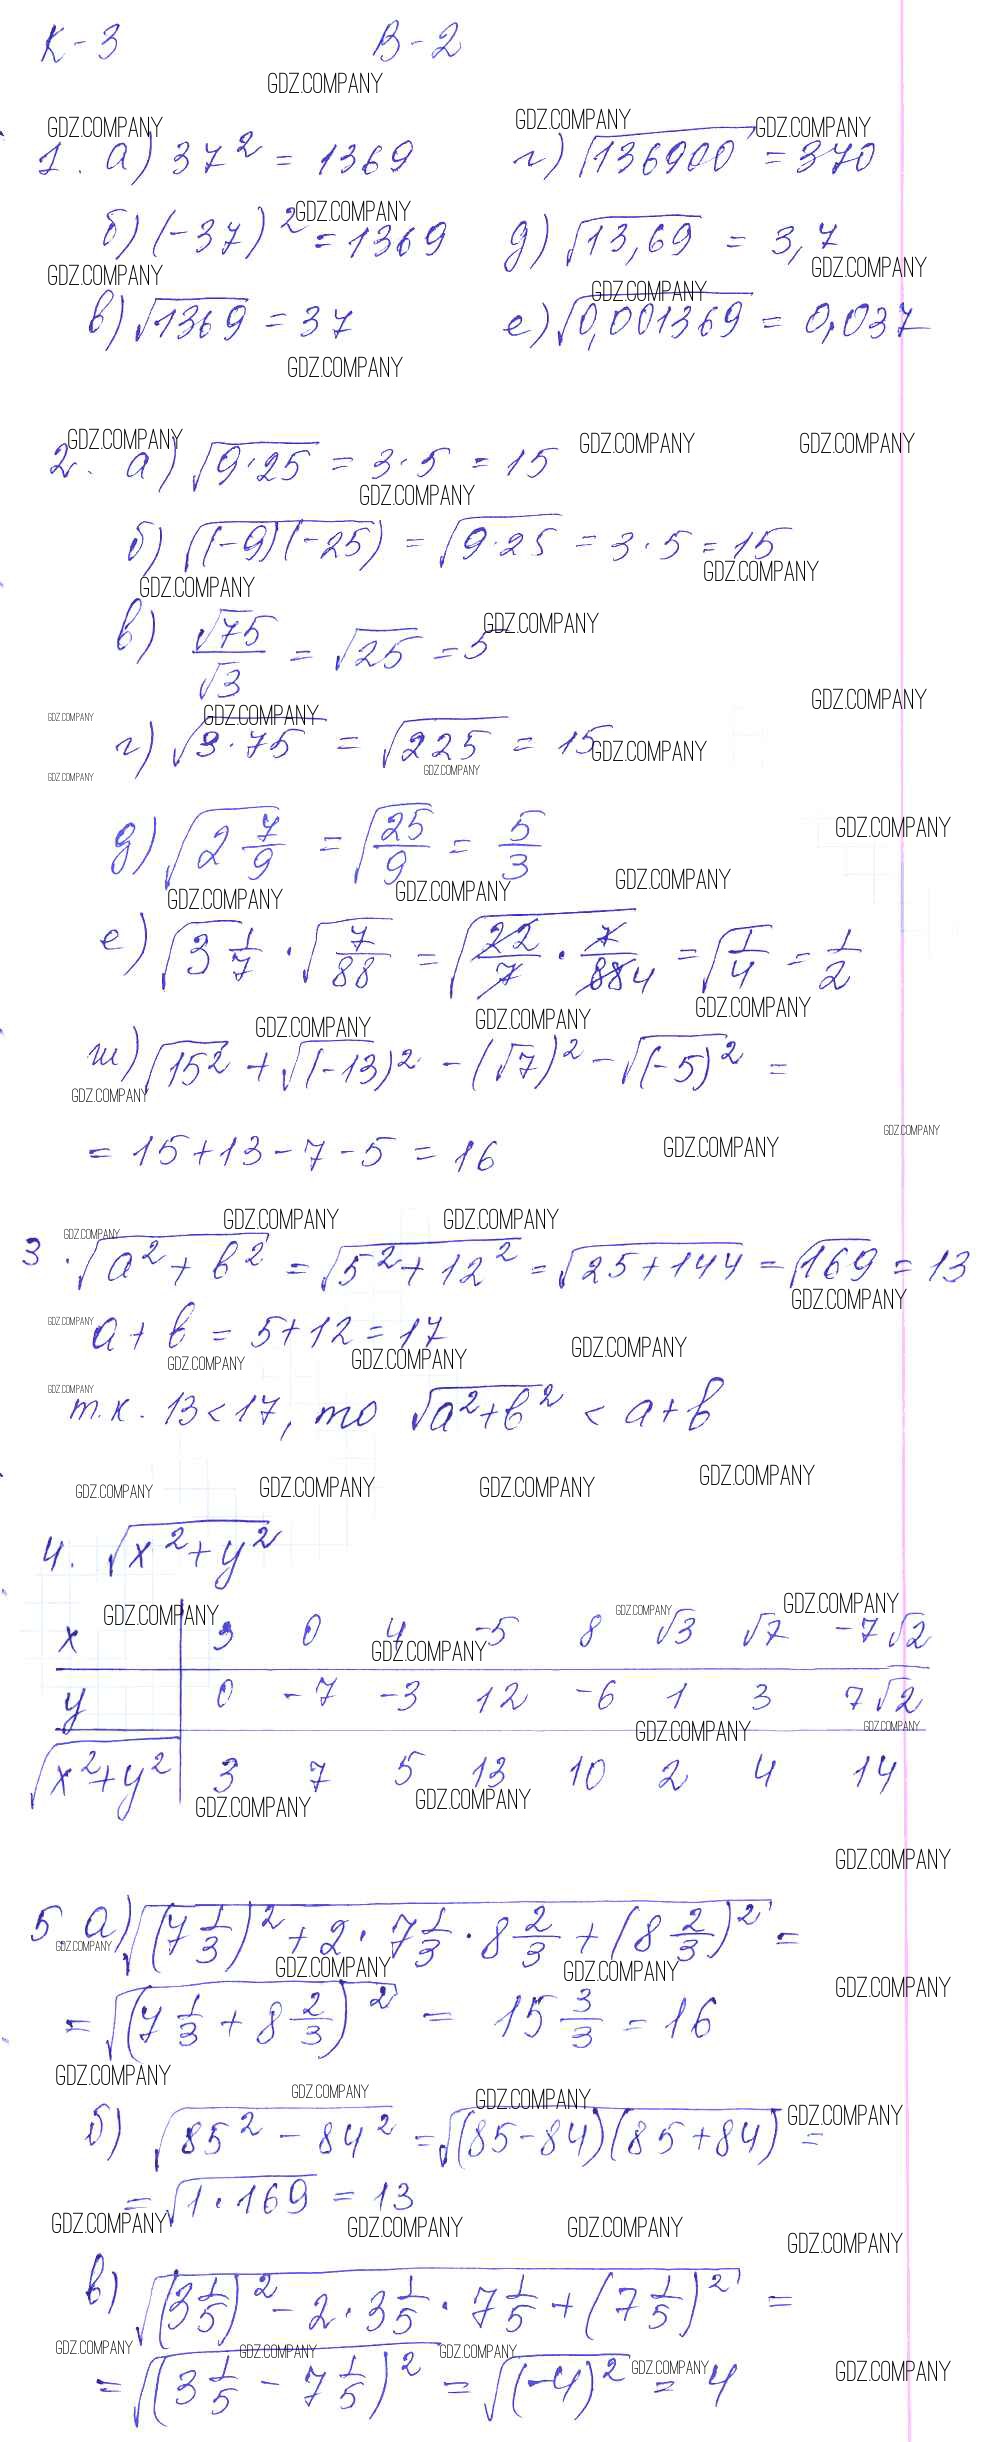 К-3 В-2
1. а) 37² = 1369 г) √136900 = 370
б) (-37)² = 1369 д) √13,69 = 3,7
в) √1369 = 37 е) √0,001369 = 0,037
2. а) √9·25 = 3·5 = 15
б) √(-9)(-25) = √9·25 = 3·5 = 15
в) √75/√3 = √25 = 5
г) √3·75 = √225 = 15
д) √2 7/9 = √25/9 = 5/3
е) √3 1/7 · √7/88 = √22/7 · 7/88 4 = √1/4 = 1/2
ж) √15² + √(-13)² - (√7)² - √(-5)² =
= 15+13-7-5 = 16
3. √a²+b² = √5²+12² = √25+144 = √169 = 13
a+b = 5+12 = 17
т.к. 13<17, то √a²+b² < a+b
4. √x²+y²
x 3 0 4 -5 8 √3 √7 -7√2
y 0 -7 -3 12 -6 1 3 7√2
√x²+y² 3 7 5 13 10 2 4 14
5. а) √(7 1/3)² + 2·7 1/3·8 2/3 + (8 2/3)² =
= √(7 1/3 + 8 2/3)² = 15 3/3 = 16
б) √85² - 84² = √(85-84)(85+84) =
= √1·169 = 13
в) √(3 1/5)² - 2·3 1/5·7 1/5 + (7 1/5)² =
= √(3 1/5 - 7 1/5)² = √(-4)² = 4
GDZ.COMPANY